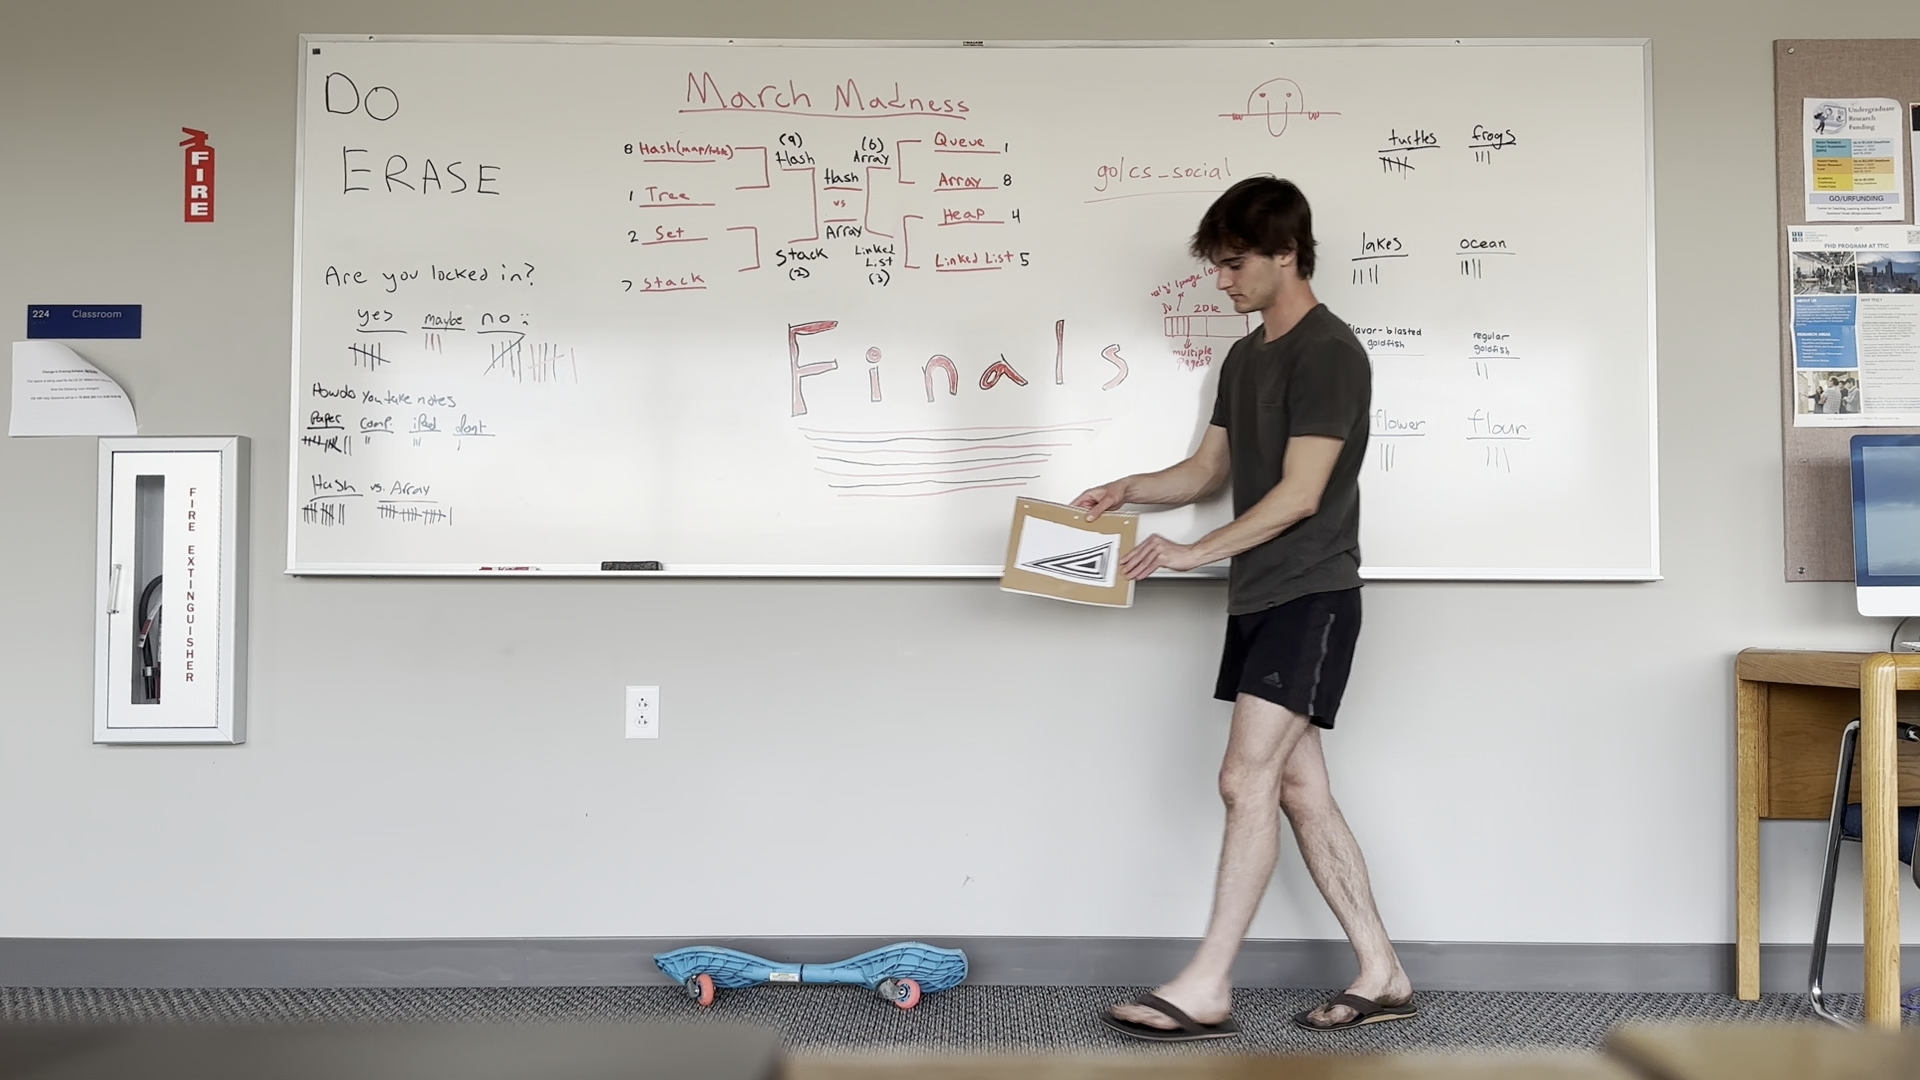 FIRE
224 Classroom
FIRE EXTINGUISHER
DO
ERASE
Are you locked in?
yes
maybe
no :
How do you take notes
Paper
comp.
iPad
dont
Hash vs. Array
March Madness
8 Hash (map/table)
1 Tree
2 Set
7 Stack
(9)
Hash
Stack
(2)
Hash
vs
Array
(6)
Array
Linked
List
(3)
Queue 1
Array 8
Heap 4
Linked List 5
Finals
go/cs_social
20k
multiple
pages?
turtles
frogs
lakes
ocean
flavor-blasted
goldfish
regular
goldfish
flower
flour
Undergraduate
Research
Funding
GO/URFUNDING
PHD PROGRAM AT TTIC